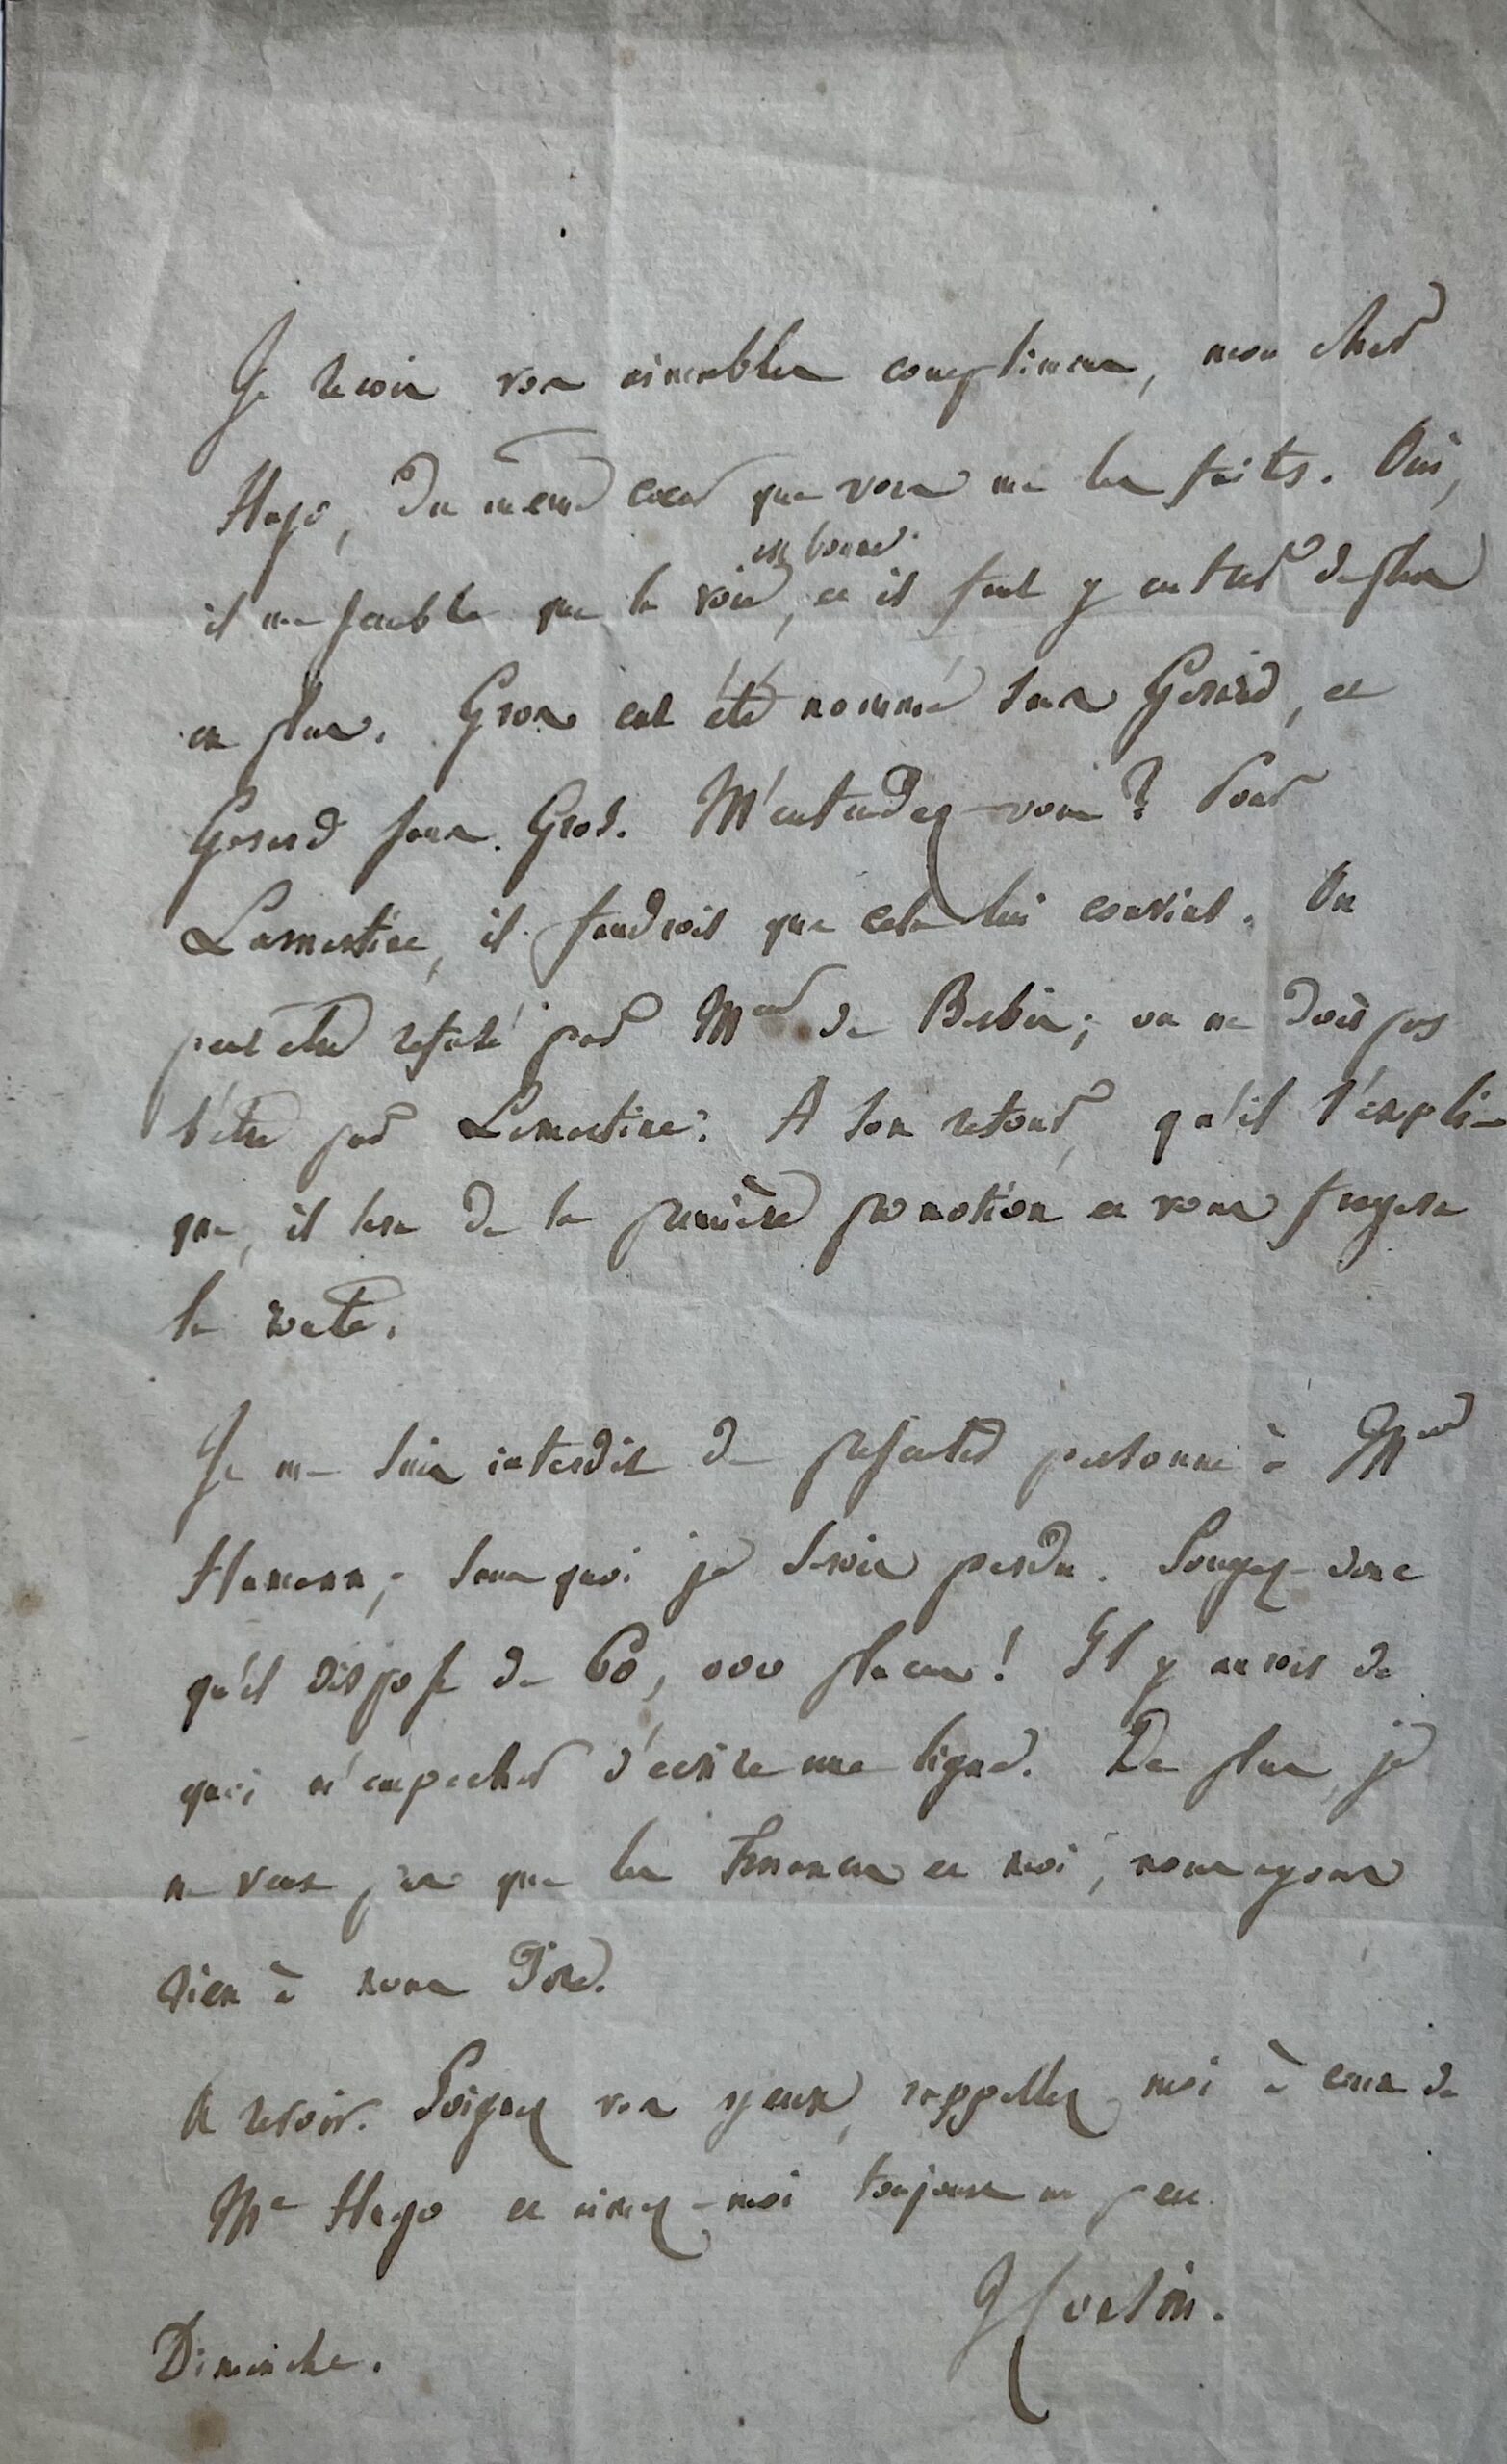 Je reçois vos aimables complimens, mon cher
Hugo, du même cœur que vous me les faits. Oui,
est bonne
il me semble que la voie, et il faut y entrer de plus
en plus. Gros eut été nommé sans Gérard, et
Gérard sans Gros. M'entendez-vous ? Pour
Lamartine, il faudroit que cela lui convint. On
peut être refusé par Mr de Barbin ; on ne doit pas
l'être par Lamartine. A son retour, qu'il s'expli-
que, il sera de la première promotion et vous frayera
la route.
Je me suis interdit de présenter personne à Mr
Humann ; sans quoi je serois perdu. Songez-donc
qu'il dispose de 60,000 places ! Il y auroit de
quoi m'empecher d'écrire une ligne. De plus, je
ne veux pas que les finances et moi, nous ayons
rien à nous dire.
A revoir. Soignez vos yeux, rappellez-moi à ceux de
Me Hugo et aimez-moi toujours un peu
Dimanche.